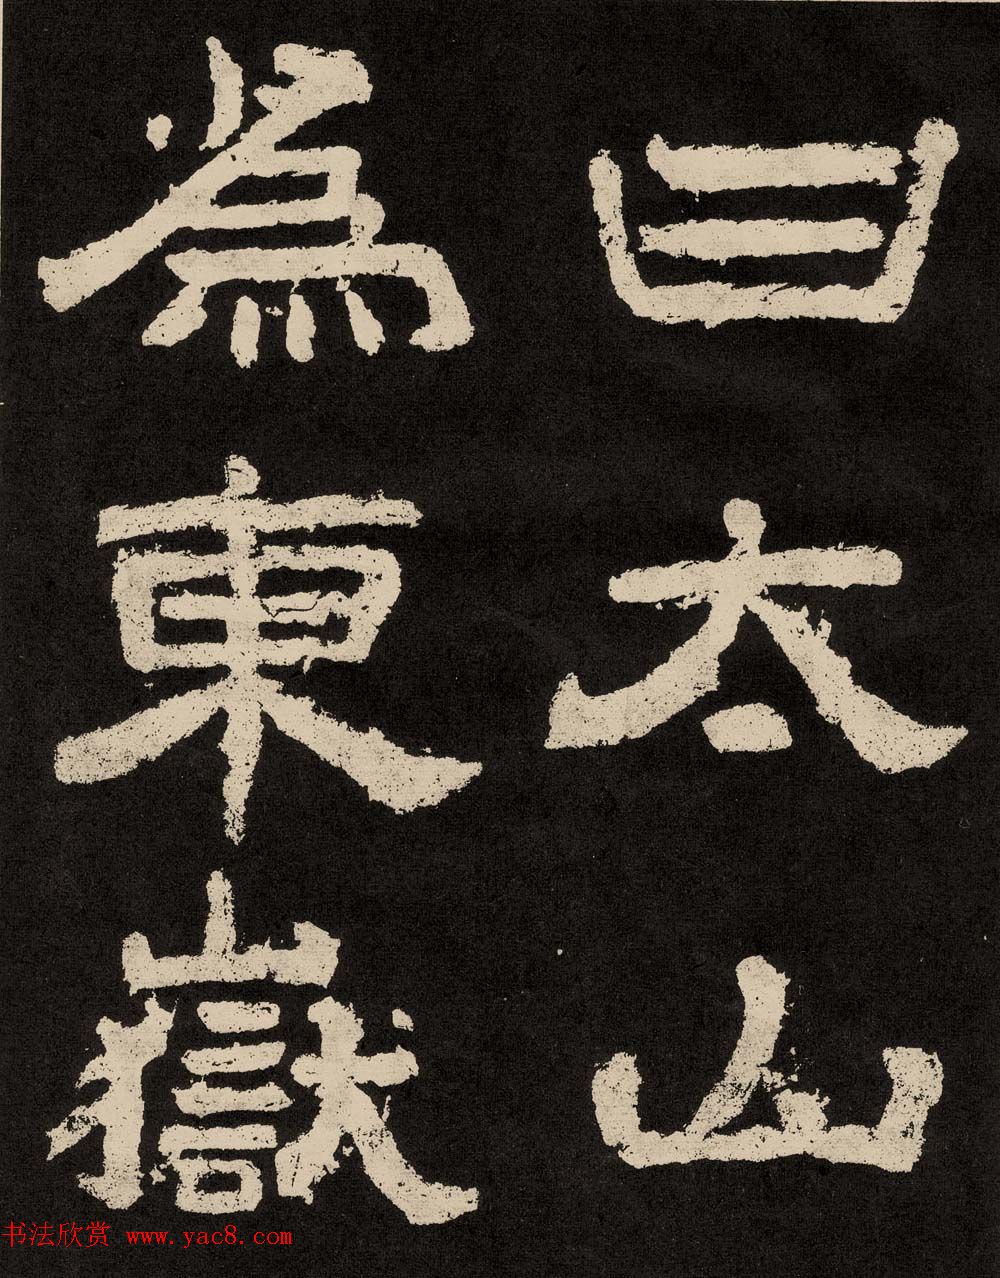 曰太山
為東嶽
书法欣赏 www.yac8.com